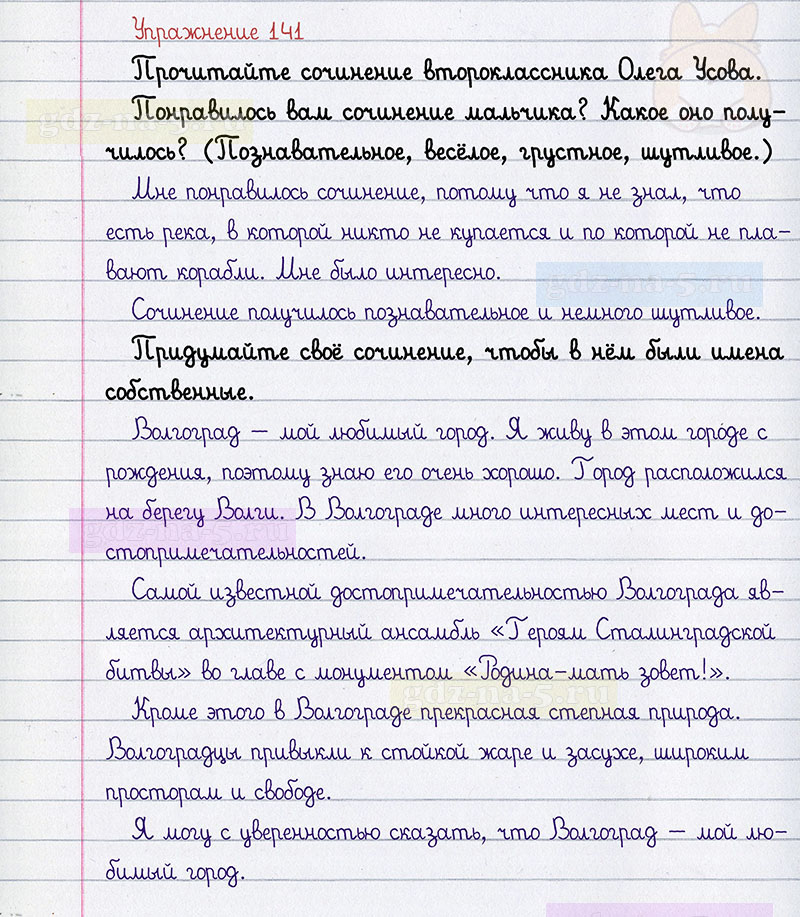 Упражнение 141
Прочитайте сочинение второклассника Олега Усова.
Понравилось вам сочинение мальчика? Какое оно полу-
чилось? (Познавательное, весёлое, грустное, шутливое.)
gdz-na-5.ru
Мне понравилось сочинение, потому что я не знал, что
есть река, в которой никто не купается и по которой не пла-
вают корабли. Мне было интересно.
gdz-na-5.ru
Сочинение получилось познавательное и немного шутливое.
Придумайте своё сочинение, чтобы в нём были имена
собственные.
Волгоград – мой любимый город. Я живу в этом городе с
рождения, поэтому знаю его очень хорошо. Город расположился
на берегу Волги. В Волгограде много интересных мест и до-
gdz-na-5.ru
стопримечательностей.
Самой известной достопримечательностью Волгограда яв-
ляется архитектурный ансамбль «Героям Сталинградской
битвы» во главе с монументом «Родина-мать зовет!».
gdz-na-5.ru
Кроме этого в Волгограде прекрасная степная природа.
Волгоградцы привыкли к стойкой жаре и засухе, широким
просторам и свободе.
Я могу с уверенностью сказать, что Волгоград – мой лю-
бимый город.